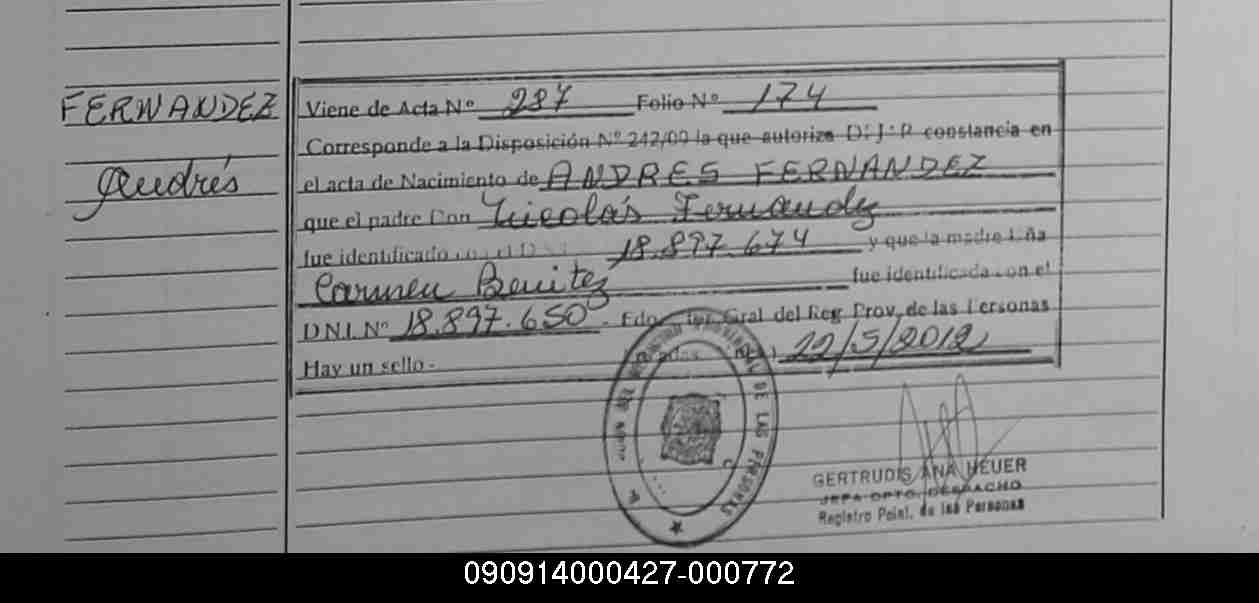 FERNANDEZ
Andrés
Viene de Acta Nº 287 Folio Nº 174
Corresponde a la Disposición Nº 242/00 la que autoriza constancia en
el acta de Nacimiento de ANDRES FERNANDEZ
que el padre Don Nicolás Fernandez
fue identificado con el D.N.I. 18.897.674 y que la madre Dña
Carmen Benitez fue identificada con el
D.N.I. Nº 18.897.650 - Fdo. Gral del Reg Prov. de las Personas
Hay un sello.- 22/5/2012
DE LAS PERSONAS
GERTRUDIS ANA HEUER
JEFA DPTO. DESPACHO
Registro Pcial. de las Personas
090914000427-000772